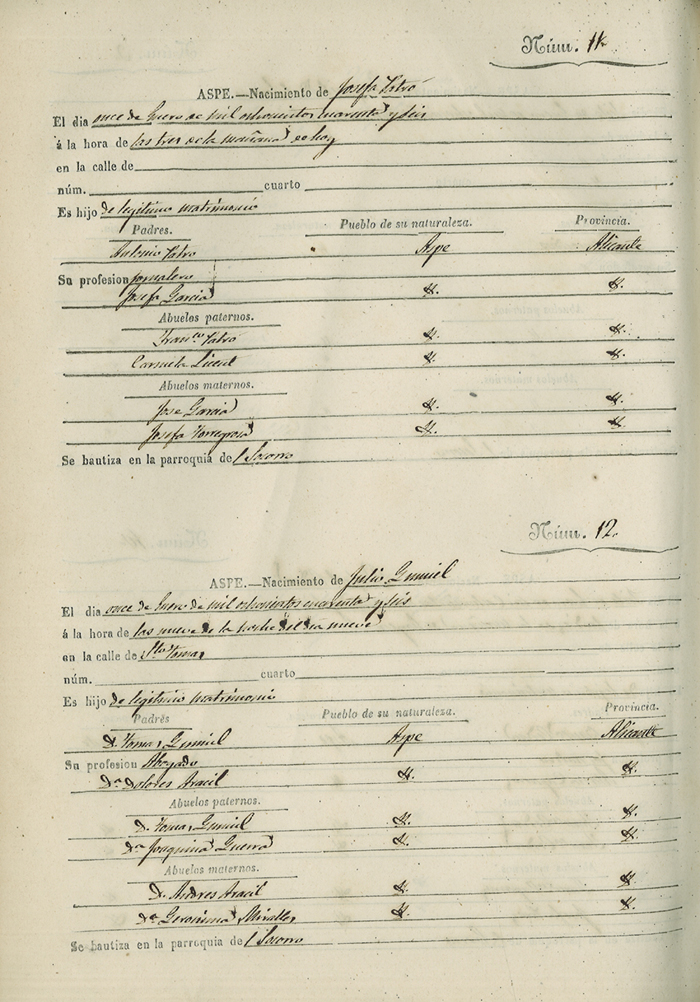 Núm. 11
ASPE.—Nacimiento de Josefa
El dia once de Enero de mil ochocientos cuarenta y seis
á la hora de las tres de la mañana de hoy
en la calle de
núm. cuarto
Es hijo de legitimo matrimonio
Padres. Pueblo de su naturaleza. Provincia.
Antonio Aspe Alicante
Su profesion Jornalero
Josefa Garcia id. id.
Abuelos paternos.
Franco id. id.
Carmela id. id.
Abuelos maternos.
Jose Garcia id. id.
Josefa Torregrosa id. id.
Se bautiza en la parroquia de l Socorro
Núm. 12.
ASPE.—Nacimiento de Julio Gumiel
El dia once de Enero de mil ochocientos cuarenta y seis
á la hora de las nueve de la noche del dia nueve
en la calle de Sto Tomas
núm. cuarto
Es hijo de legitimo matrimonio
Padres Pueblo de su naturaleza. Provincia.
D. Tomas Gumiel Aspe Alicante
Su profesion Abogado
Da Dolores Aracil id. id.
Abuelos paternos.
D. Tomas Gumiel id. id.
Da Joaquina Guerra id. id.
Abuelos maternos.
D. Andres Aracil id. id.
Da Geronima Miralles id. id.
Se bautiza en la parroquia de l Socorro